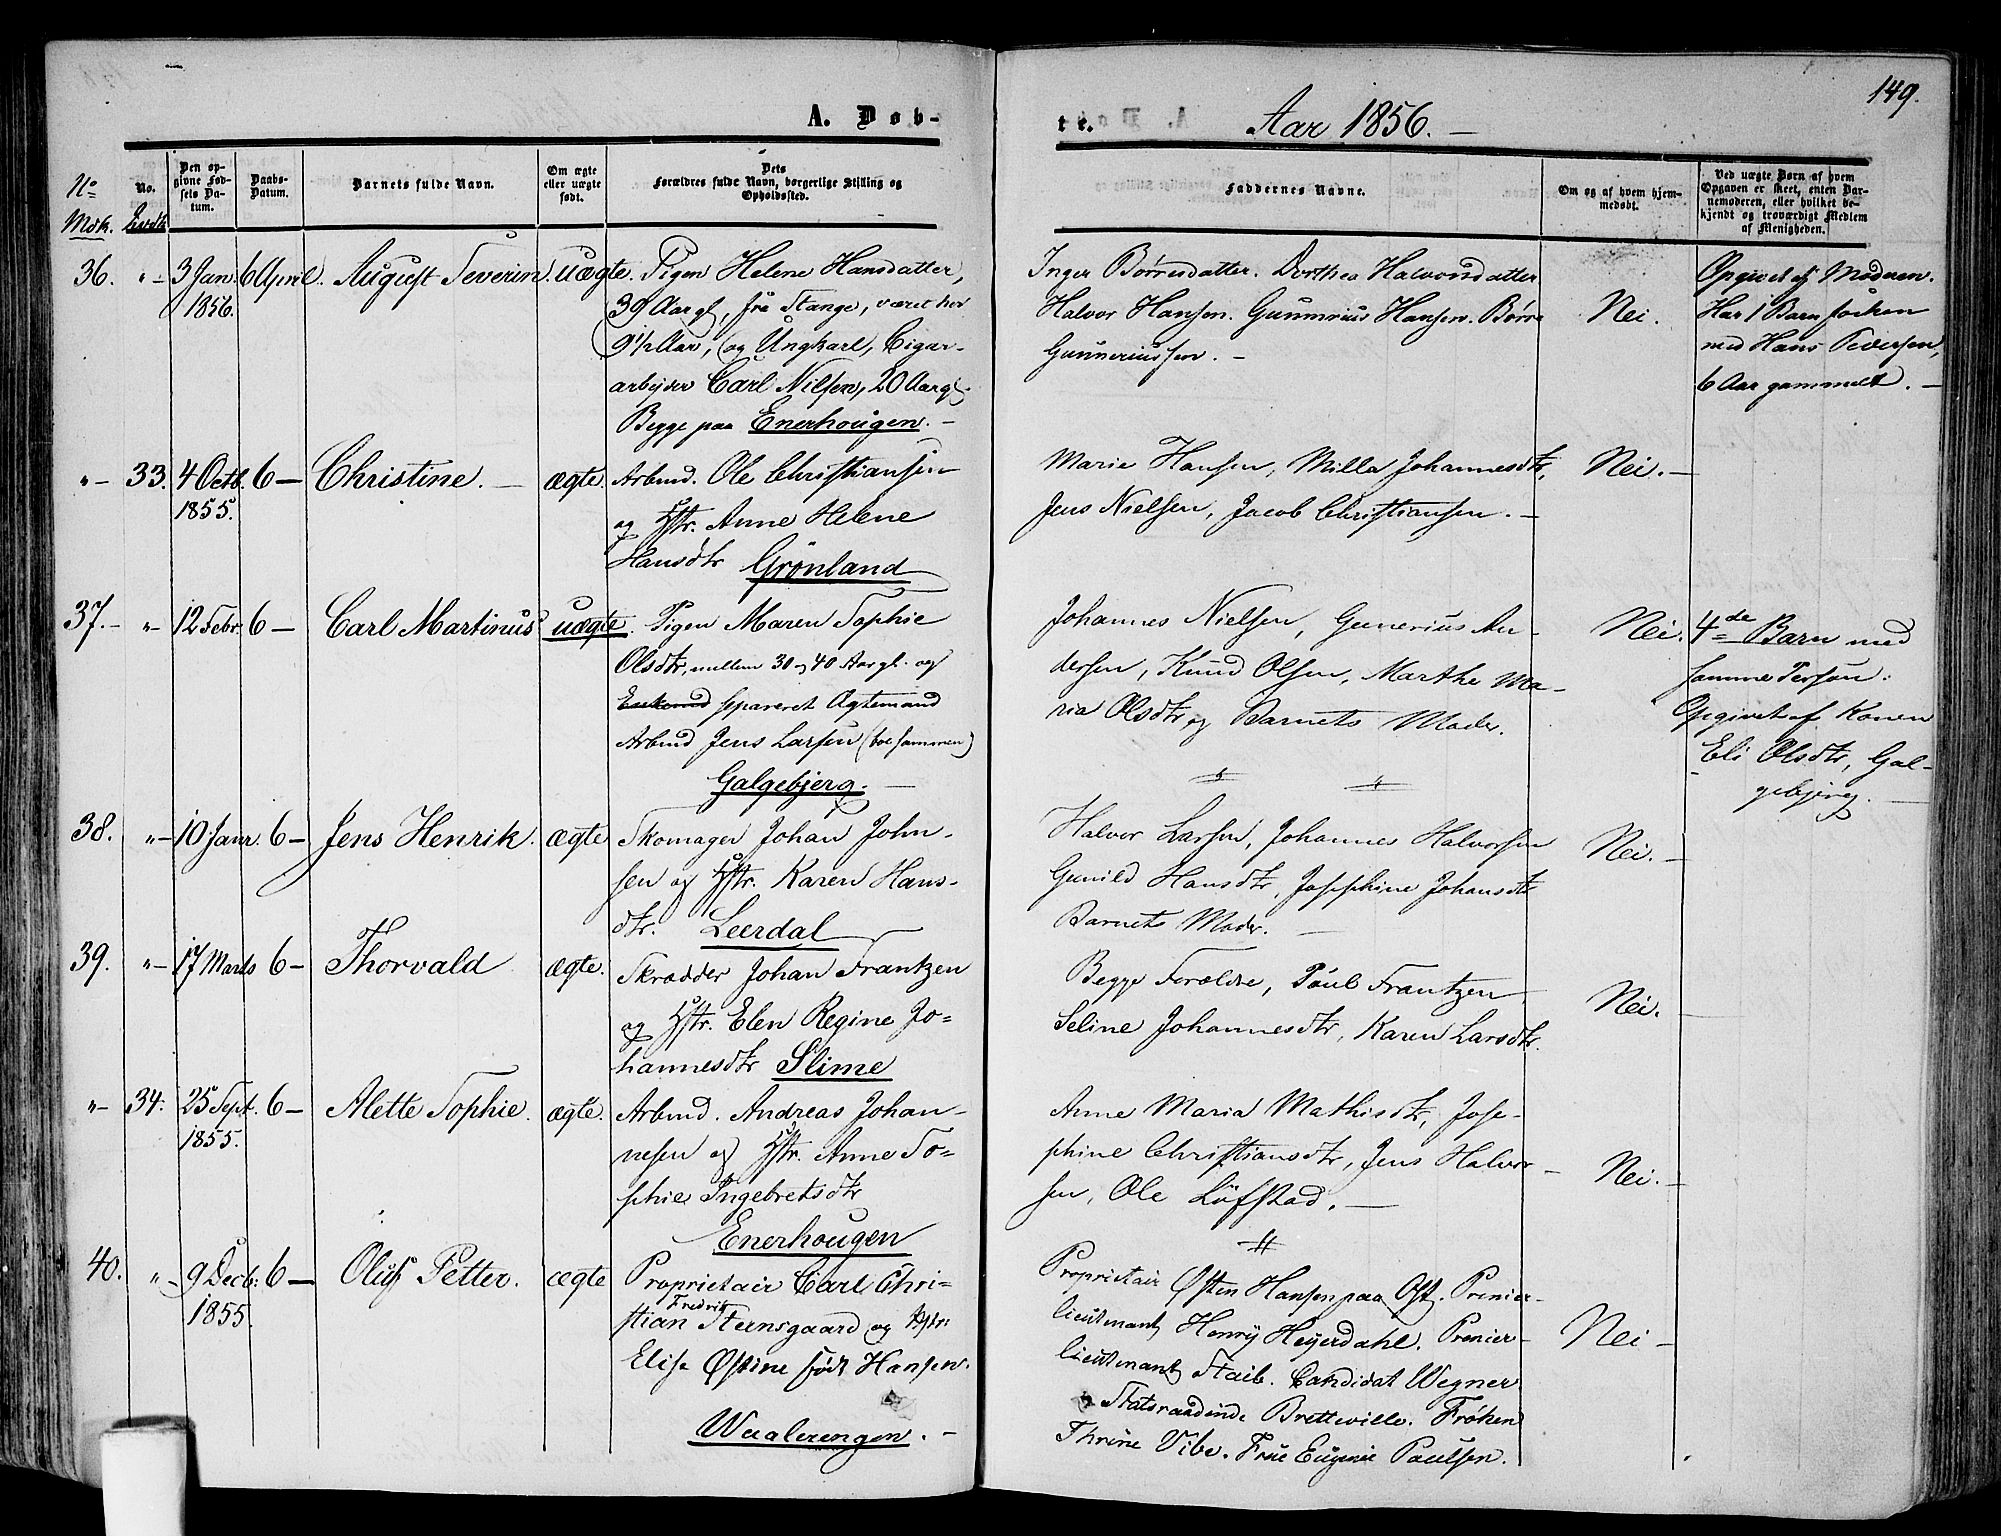 149.
A. Døb-
te. Aar 1856. —
No Mdk.
No. Kvdk.
Den opgivne Fødsels Datum.
Daabs-Datum.
Barnets fulde Navn.
Om ægte eller uægte født.
Dets Forældres fulde Navn, borgerlige Stilling og Opholdssted.
Faddernes Navne.
Om og af hvem hjemmedøbt.
Ved uægte Børn af hvem Opgaven er skeet, enten Barnemoderen, eller hvilket bekjendt og troværdigt Medlem af Menigheden.
36. " — 3 Jan. 1856. 6 April. August Severin. uægte.
Pigen Helene Hansdatter,
39 Aar gl, fra Stange, været her
9 1/2 Aar, og Ungkarl, Cigar-
arbejder Carl Nilsen, 20 Aar gl.
Begge paa Enerhougen. —
Inger Børresdatter. Dorthea Halvorsdatter
Halvor Hansen. Gunnerius Hansen. Børre
Gunneriussen. —
Nei.
Opgivet af Moderen.
Har 1 Barn forhen
med Hans Pedersen,
6 Aar gammelt. —
" — 33. 4 Octb. 1855. 6 — Christine. — ægte.
Arbmd. Ole Christiansen
og Hstr. Anne Helene
Hansdtr Grønland
Marie Hansen, Milla Johannesdtr,
Jens Nielsen, Jacob Christiansen. —
Nei. —
37. — " — 12 Febr. 6 — Carl Martinus uægte.
Pigen Maren Sophie
Olsdtr, mellem 30 og 40 Aar gl. og
Enkemd separeret Ægtemand
Arbmd Jens Larsen (boe sammen)
Galgebjerg. —
Johannes Nielsen, Gunerius An-
dersen, Knud Olsen, Marthe Ma-
ria Olsdtr og Barnets Moder.
Nei.
4de Barn med
samme Person.
Opgivet af Konen
Eli Olsdtr, Gal-
gebjerg. —
38. " — 10 Janr. 6 — Jens Henrik. ægte
Skomager Johan John-
sen og Hstr. Karen Hans-
dtr. Leerdal
Halvor Larsen, Johannes Halvorsen
Gunild Hansdtr, Josephine Johansdtr
Barnets Moder. —
Nei. —
39. " — 17 Marts 6 — Thorvald ægte.
Skrædder Johan Frantzen
og Hstr. Elen Regine Jo-
hannesdtr Slime
Begge Forældre, Paul Frantzen
Seline Johannesdtr, Karen Larsdtr.
Nei.
" — 34. 25 Sept. 1855. 6 — Alette Sophie. ægte.
Arbmd. Andreas Johan-
nesen og Hstr. Anne So-
phie Ingebretsdtr
Enerhougen
Anne Maria Mathisdtr, Jose-
phine Christiansdtr, Jens Halvor-
sen, Ole Løfstad. —
Nei. —
40. " — 9 Decb. 1855. 6 — Oluf Petter. ægte
Proprietair Carl Chri-
stian Fredrik Steensgaard og Hstr:
Elise Østine født Hansen.
Waalerengen. —
Proprietair Østen Hansen paa Øst. Premier-
lieutenant Henry Heyerdahl. Premier-
lieutenant Staib. Candidat Wegner.
Statsraadinde Bretteville. Frøken
Thrine Vibe. Frue Eugenie Paulsen.
Nei —